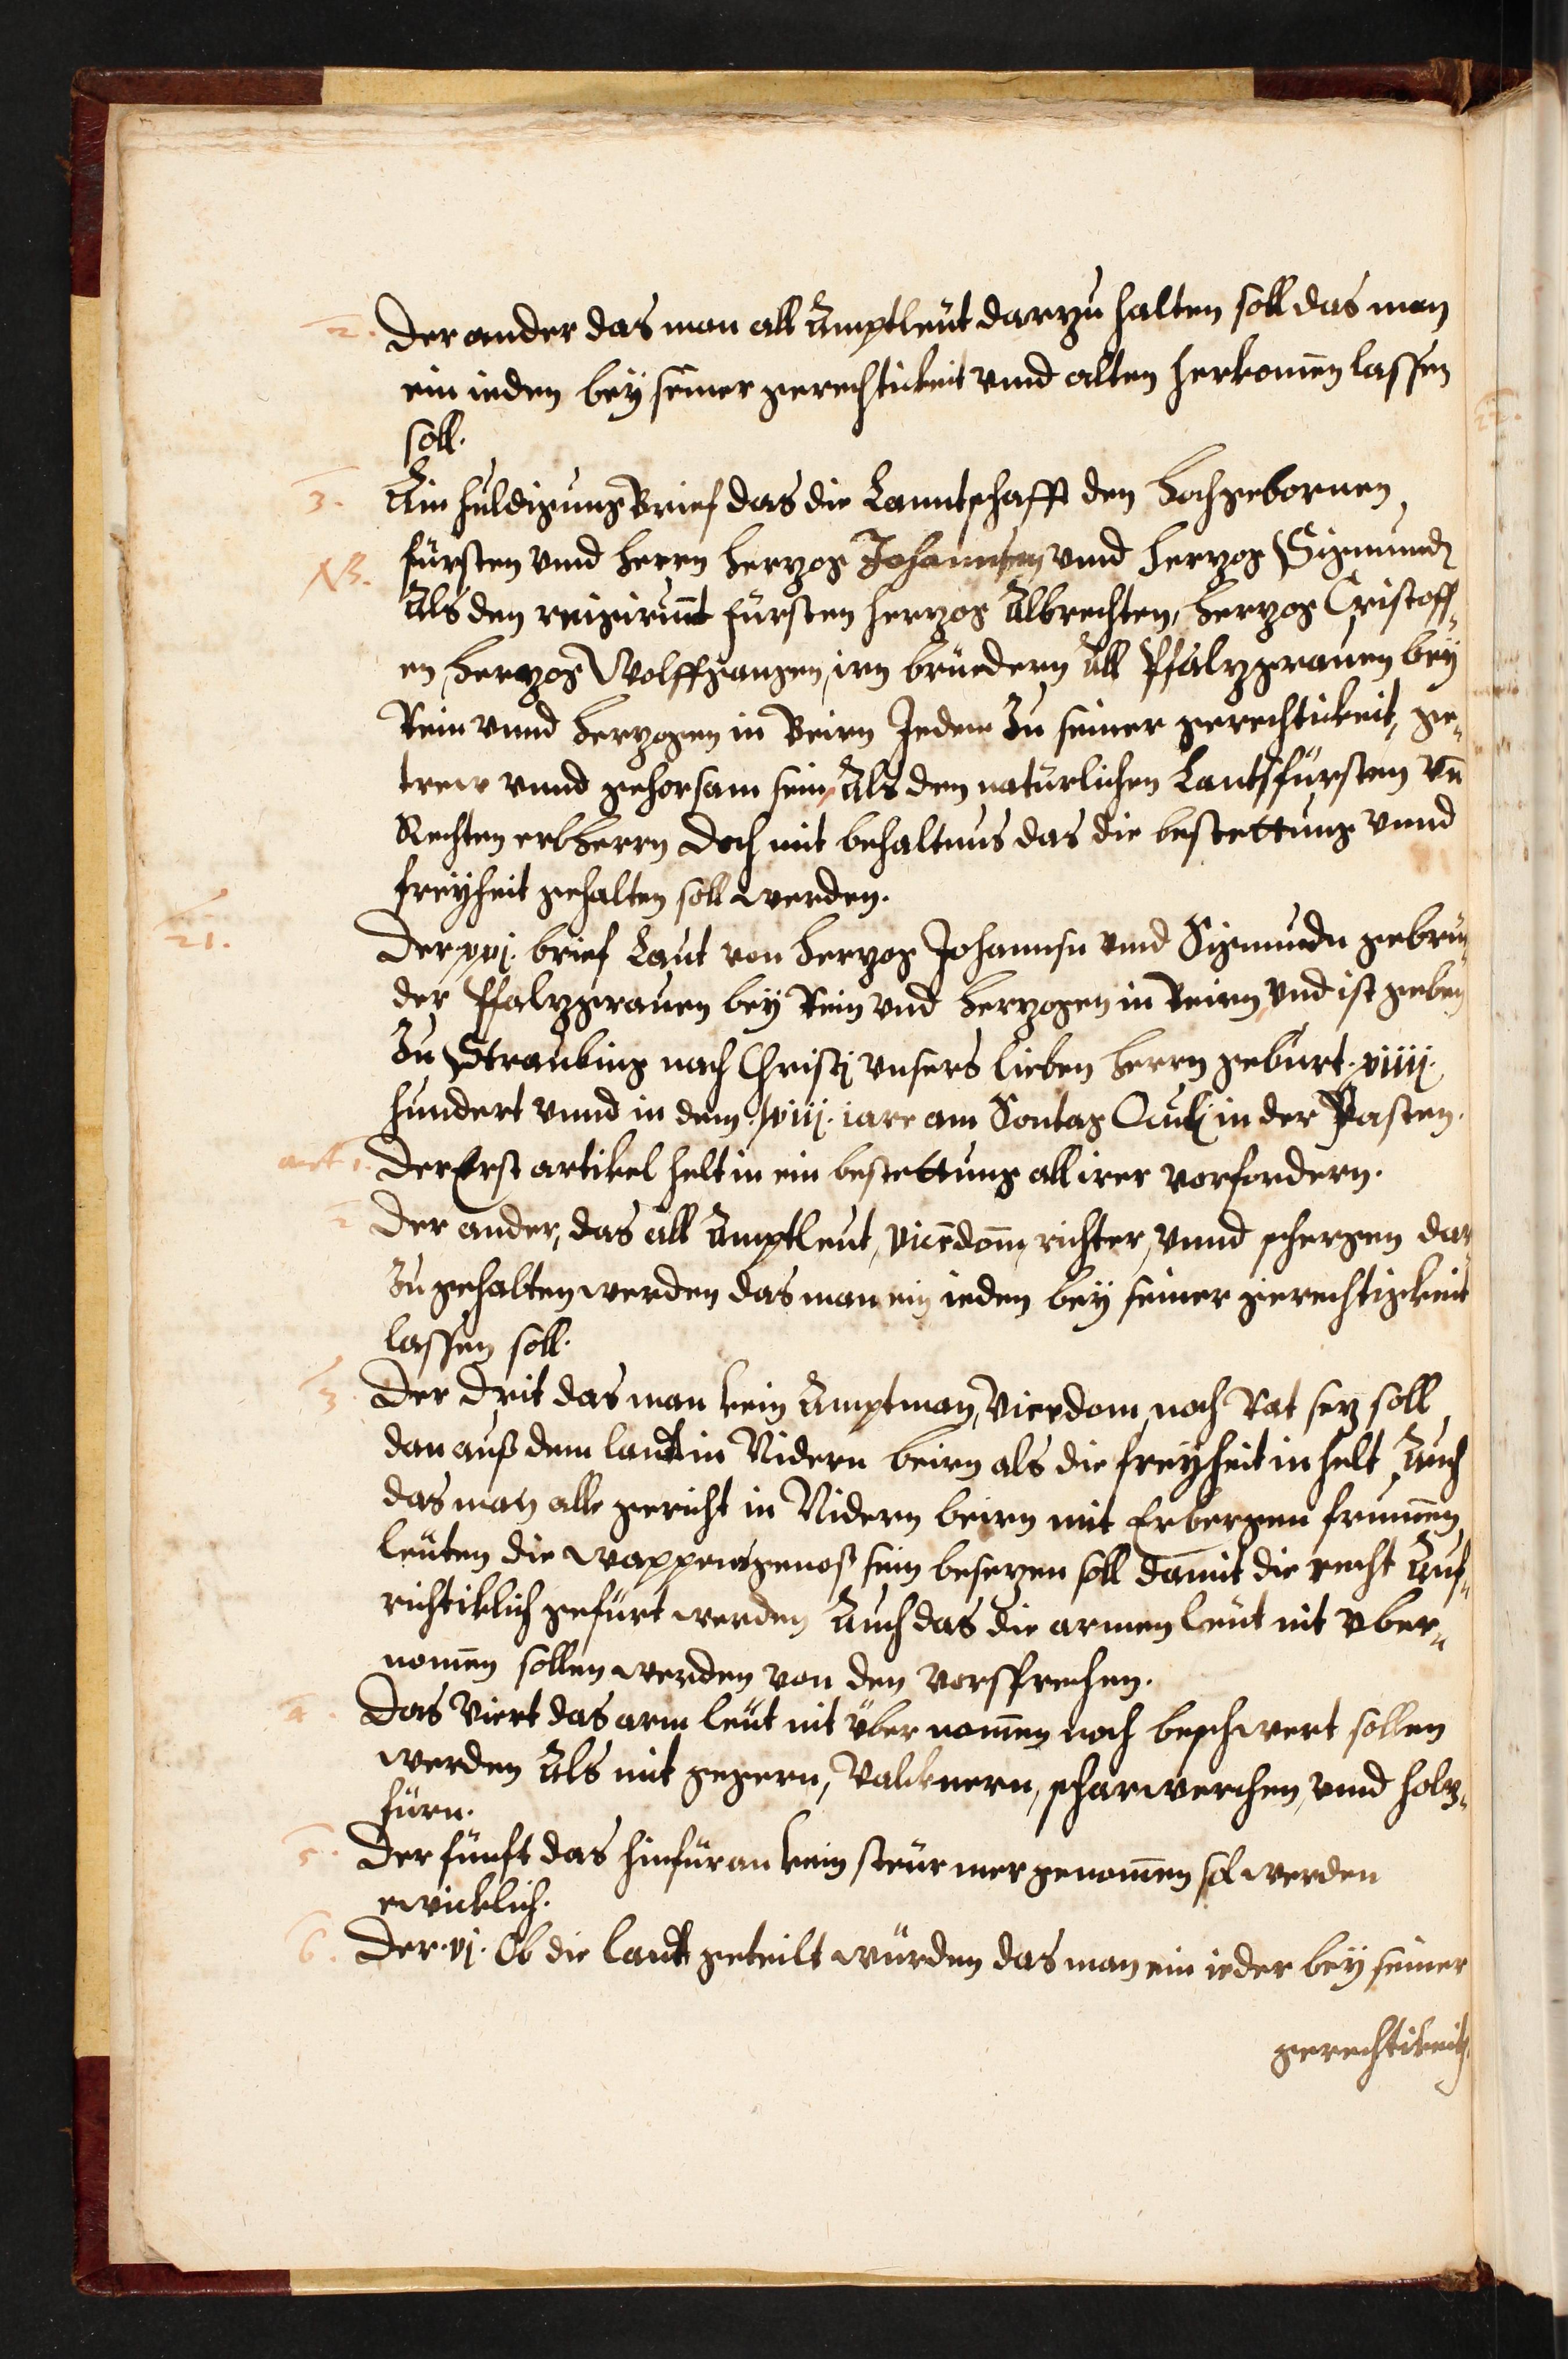 2. Der ander das man all Amptleut darzu halten soll das man
ein ieden bey seiner gerechtickeit vnnd alten herkomen lassen
soll.
3. Ain huldigung Brief das die Lanntschafft den Hochgebornnen
NB. fürsten vnnd herrn herzog Johannsen vnnd herzog Sigmundn
Als den reigirnnt fürsten herzog Albrechten, herzog Cristoff„
en, herzog Wolffgangen, irn bruedern All Pfalzgrauen bey
Rein vnnd herzogen in Beirn Jedem Zu seiner gerechtickeit, ge„
trew vnnd gehorsam sein, Als den naturlichen Lantsfürsten vn̄
Rechten erbherrn doch mit behaltnus das die bestettung vnnd
freyheit gehalten soll werden.
21. Der xxj. brief Laut von herzog Johannsn vnnd Sigmundn gebrü„
der Pfalzgrauen bey Rein vnd herzogen in Beirn, vnd ist geben
Zu Straubing nach Christj vnsers lieben herrn geburt. xiiij.
hundert vnnd in dem. lxiij. iare am Sontag Oculj in der Vasten.
art 1. Der Erst artikel helt in ein bestettung all irer vorfordern.
2 Der ander, das all Amptleut, vicēdom̄, richter, vnnd schergen dar
Zu gehalten werden das man ein ieden bey seiner gerechtigkeit
lassen soll.
3. Der Drit das man kein Amptman, Vicedom, noch Rat sez soll
dan auß dem landt in Nidern beirn als die freyheit in helt, Auch
das man alle gericht in Nidern beirn mit Erbergen frummen
leuten die wappensgenoß sein besezen soll damit die recht Auf„
richtiklich gefürt werden Auch das die armen leut nit vber„
nomen sollen werden von den vorsprechen.
4. Das Viert das arm leut nit über nomen noch beschwert sollen
werden Als mit gegern, Valcknern, scharwerchen, vnnd holz„
fürn.
5. Der fünfft das hinfüran kein steur mer genomen sol werden
ewicklich.
6. Der. vj. Ob die landt geteilt würden das man ein ieder bey seiner
gerechtikeit
22.